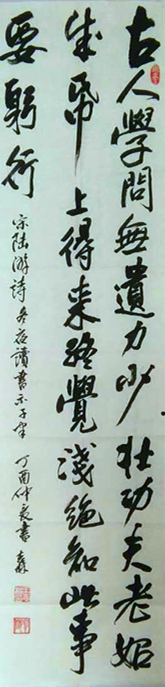 古人學問無遺力少壯功夫老始
成帋上得来終覺淺絕知此事
要躬行
宋陸游詩冬夜讀書示子聿 丁酉仲夏書